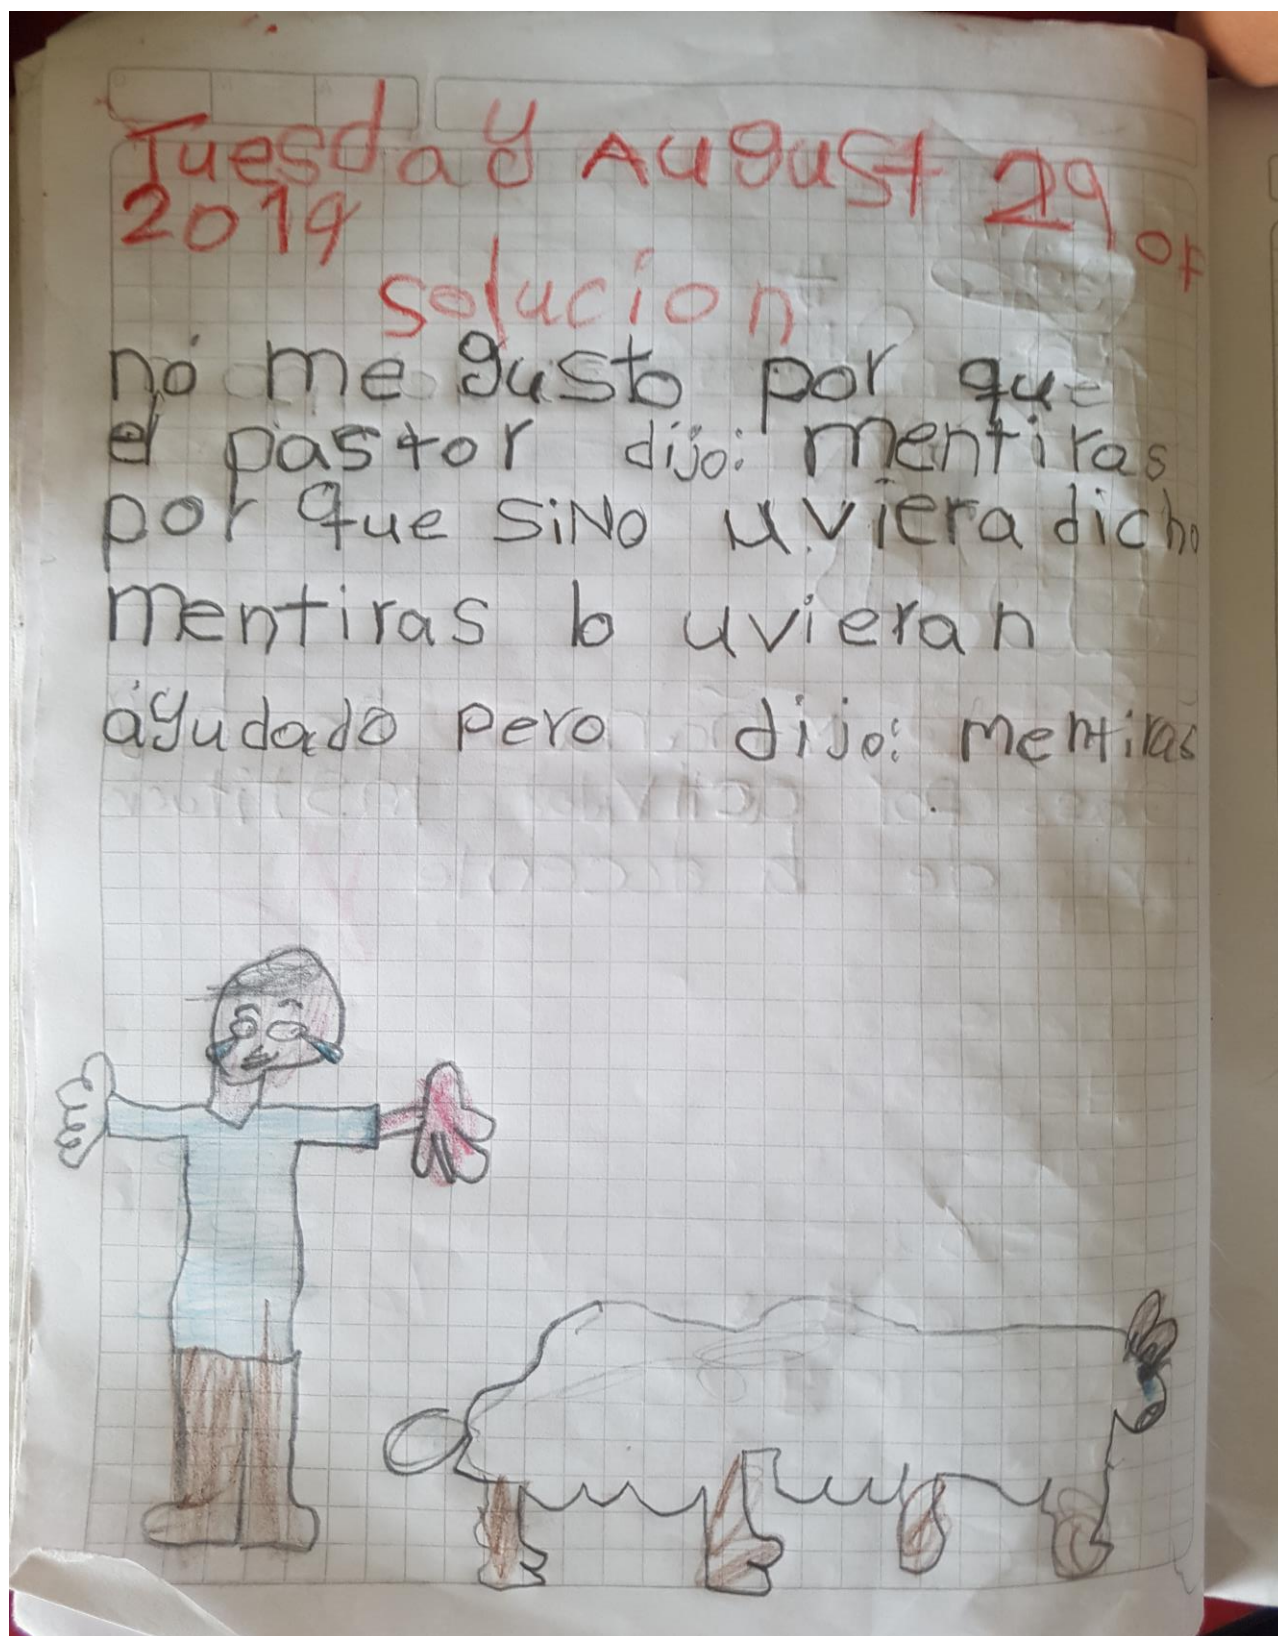 Tuesday August 29 of
2019
solucion
no me gusto por que
el pastor dijo: mentiras
por que siNo uviera dicho
mentiras lo uvieran
ayudado pero dijo: mentiras